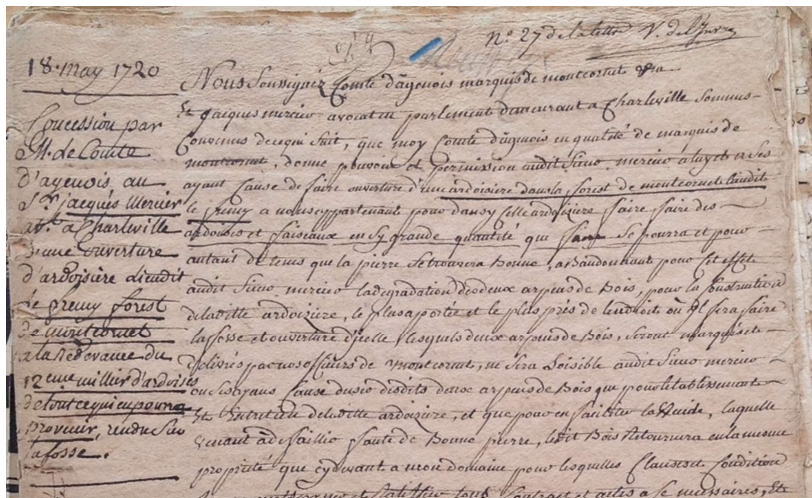 N.° 27 de la lettre V. de l'Inv.re
18. may 1720
Concession par
M. le Comte
d'agenois, au
S.r jacques Mercier
av.t a Charleville
d'une ouverture
d'ardoisiere lieudit
le gremy forest
de montcornet
a la Redevance du
12eme millier d'ardoises
de tout ce qui en pourra
provenir, rendu sur
la fosse.
Nous Soussignez Comte d'agenois marquis de montcornet
Et jacques mercier avocat en parlement demeurant a Charleville Sommes
Convenus de ce qui suit, que moy Comte d'agenois en qualité de marquis de
montcornet, donne pouvoir et permission audit Sieur mercier a luy et a Ses
ayant cause de faire ouverture d'une ardoisiere dans la forest de montcornet lieudit
le gremy a nous appartenant pour dans icelle ardoisiere faire faire des
ardoises et faiseaux en Sy grande quantité que faire Se pourra et pour
autant de tems que la pierre Se trouvera Bonne, abandonnant pour cet effet
audit Sieur mercier la degradation de deux arpens de Bois, pour la Construction
de laditte ardoiziere, le plus a portée et le plus près de lendroit où Il Sera faire
la fosse et ouverture d'icelle lesquels deux arpens de Bois, Seront marqués et
délivrés par nos officiers de montcornet, ne Sera Loisible audit Sieur mercier
ou Ses ayans Cause desdits deux arpens de Bois que pour l'etablissement
Et l'Entretien de laditte ardoiziere, et que pour en faciliter la Vuide, laquelle
venant à defaillir faute de Bonne pierre, ledit Bois Retournera en la mesme
propriété que cy devant a mon domaine pour lesquelles Clauses et Condition
tous Contract et actes a ce necessaires, Et